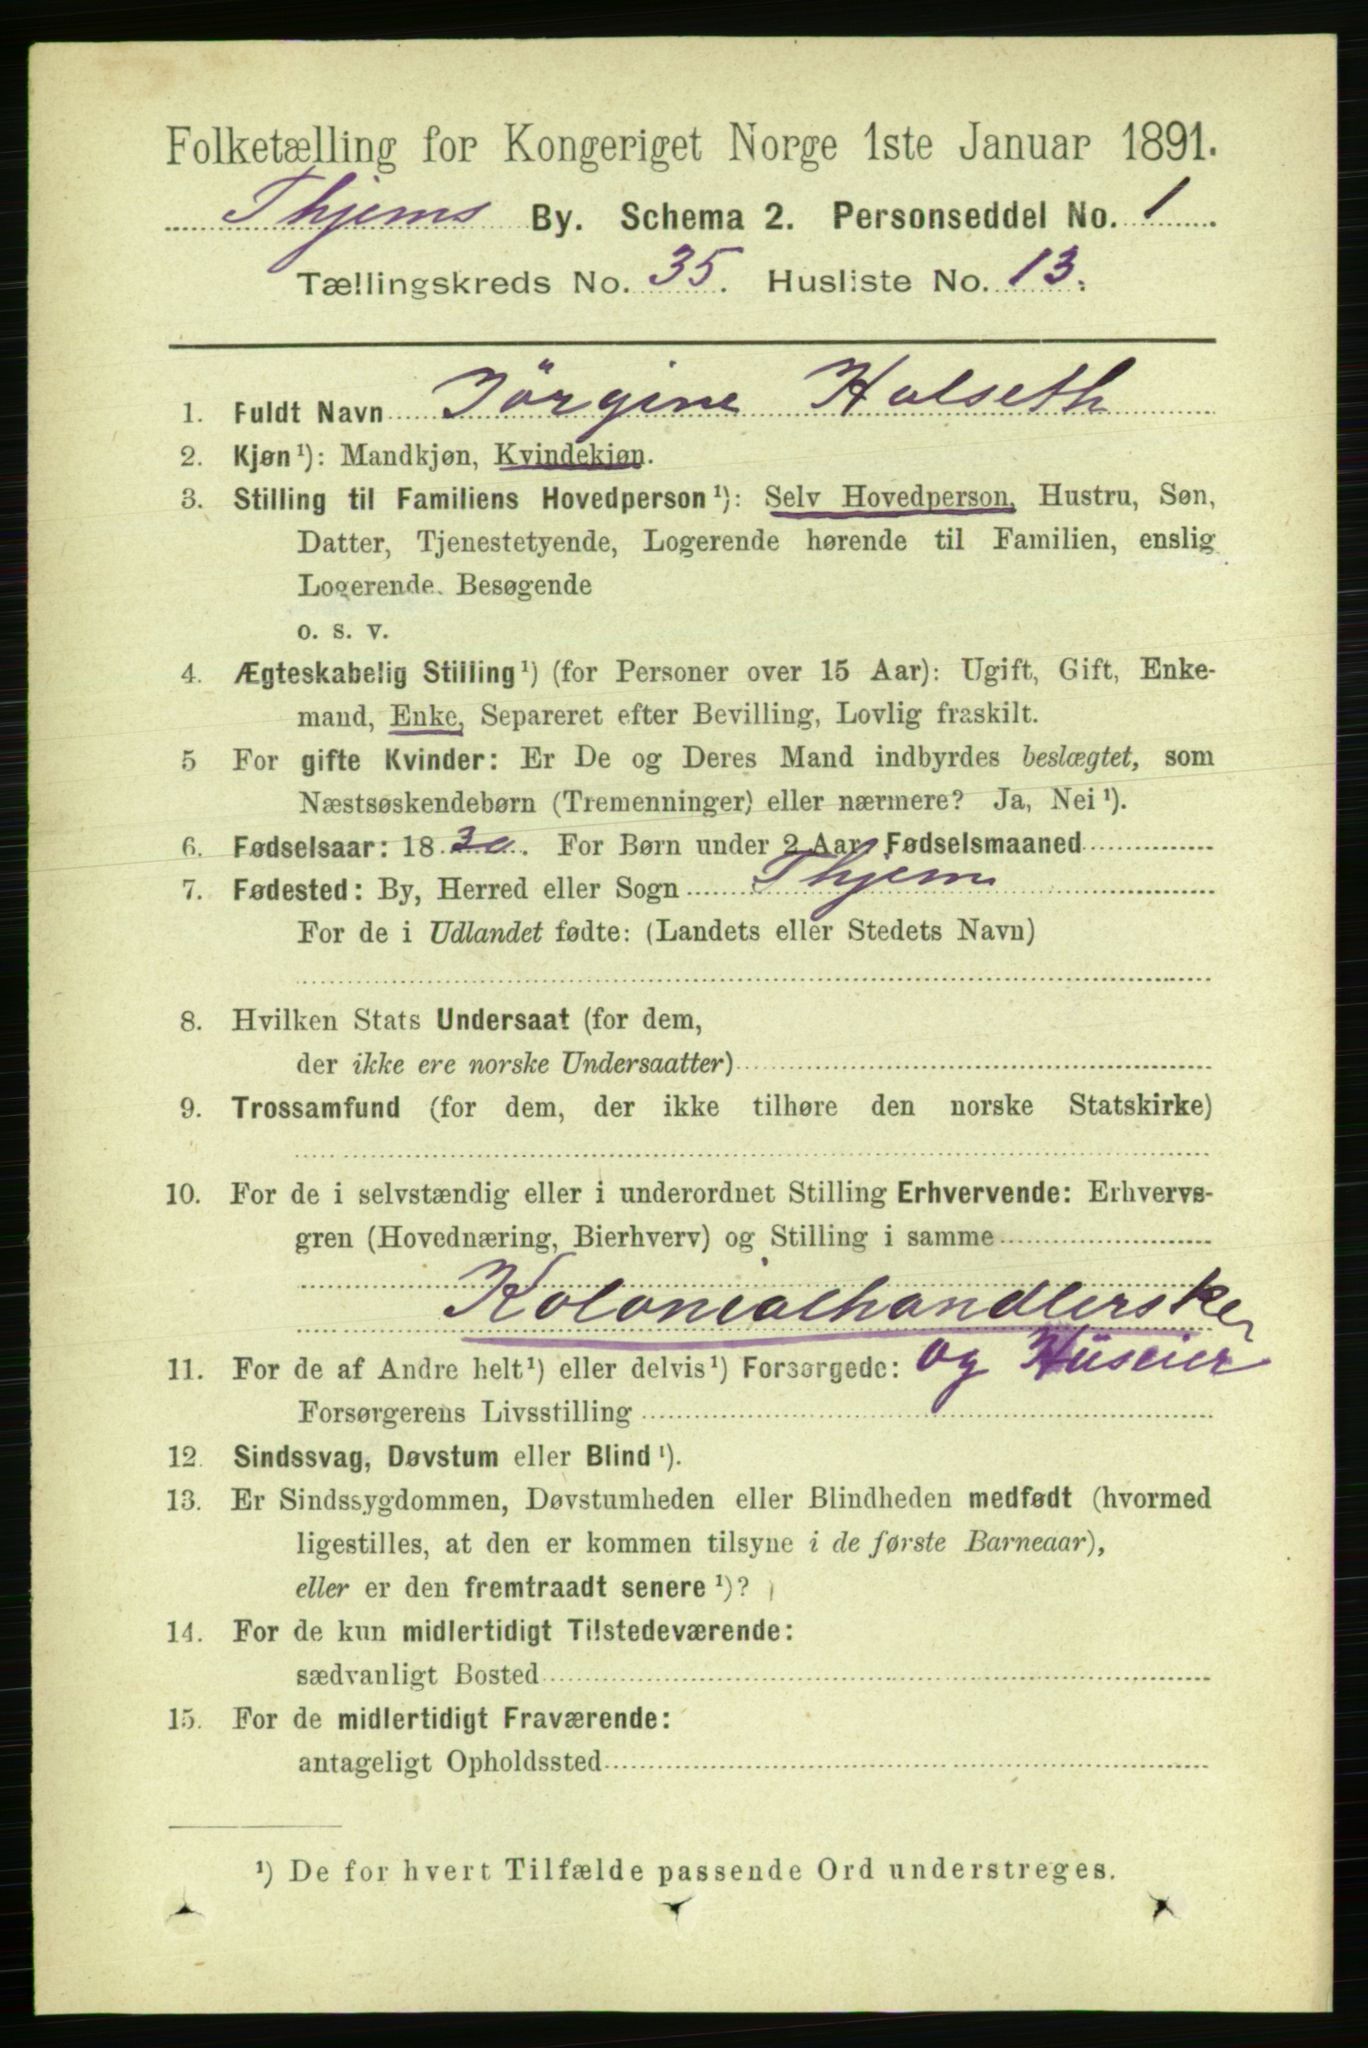 Folketælling for Kongeriget Norge 1ste Januar 1891.
Thjems By. Schema 2. Personseddel No. 1
Tællingskreds No. 35. Husliste No. 13.
1. Fuldt Navn Jörgine Halseth
2. Kjøn¹): Mandkjøn, Kvindekjøn.
3. Stilling til Familiens Hovedperson¹): Selv Hovedperson, Hustru, Søn,
Datter, Tjenestetyende, Logerende hørende til Familien, enslig
Logerende. Besøgende
o. s. v.
4. Ægteskabelig Stilling¹) (for Personer over 15 Aar): Ugift, Gift, Enke-
mand, Enke, Separeret efter Bevilling, Lovlig fraskilt.
5 For gifte Kvinder: Er De og Deres Mand indbyrdes beslægtet, som
Næstsøskendebørn (Tremenninger) eller nærmere? Ja, Nei¹).
6. Fødselsaar: 1830. For Børn under 2 Aar, Fødselsmaaned
7. Fødested: By, Herred eller Sogn Thjem
For de i Udlandet fødte: (Landets eller Stedets Navn)
8. Hvilken Stats Undersaat (for dem,
der ikke ere norske Undersaatter)
9. Trossamfund (for dem, der ikke tilhøre den norske Statskirke)
10. For de i selvstændig eller i underordnet Stilling Erhvervende: Erhvervs-
gren (Hovednæring, Bierhverv) og Stilling i samme
Kolonialhandlerske
og Huseier
11. For de af Andre helt¹) eller delvis¹) Forsørgede:
Forsørgerens Livsstilling
12. Sindssvag, Døvstum eller Blind¹).
13. Er Sindssygdommen, Døvstumheden eller Blindheden medfødt (hvormed
ligestilles, at den er kommen tilsyne i de første Barneaar),
eller er den fremtraadt senere¹)?
14. For de kun midlertidigt Tilstedeværende:
sædvanligt Bosted
15. For de midlertidigt Fraværende:
antageligt Opholdssted
¹) De for hvert Tilfælde passende Ord understreges.